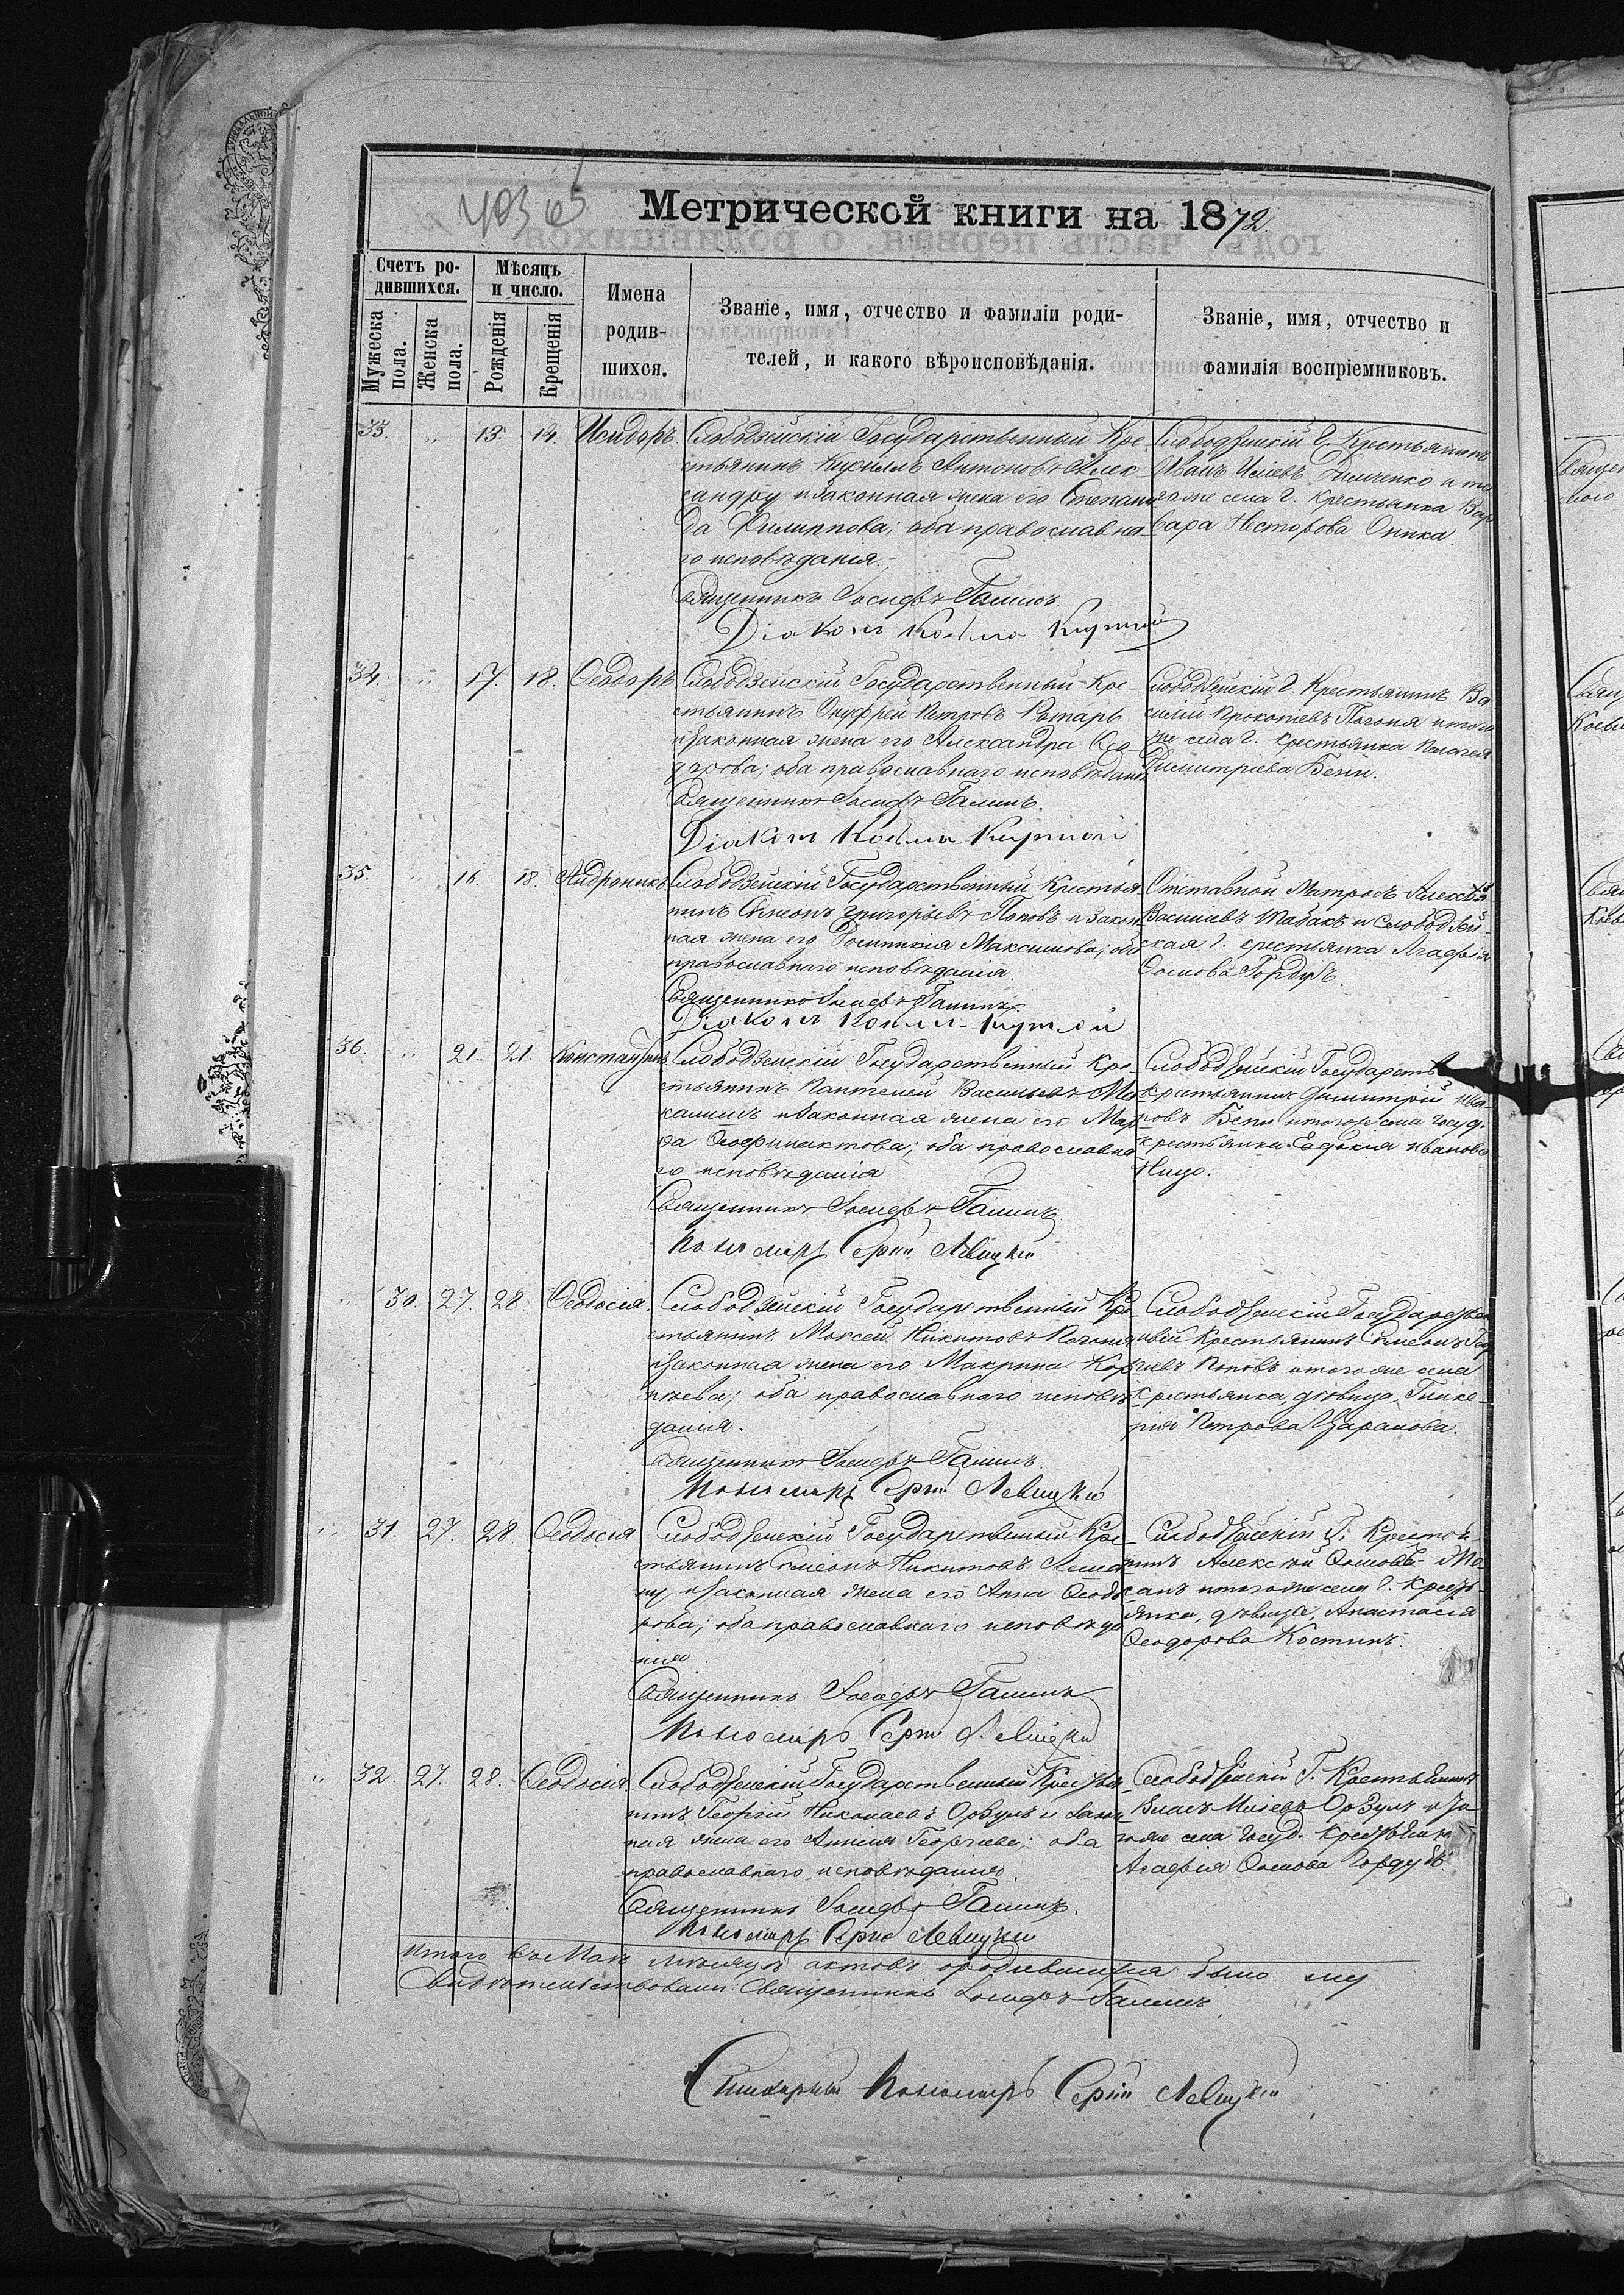 Метрической книги на 1872.
Счетъ родившихся.
Мужеска пола.
Женска пола.
Мѣсяцъ и число.
Рожденія
Крещенія
Имена родившихся.
Званіе, имя, отчество и фамиліи роди-
телей, и какого вѣроисповѣданія.
Званіе, имя, отчество и
фамилія воспріемниковъ.
33. " 13. 14. Исидоръ.
Слободзейскій Государственный Кре-
стьянинъ Кириллъ Антоновъ Алек-
сандру и законная жена его Степани-
да Филиппова; оба православна-
го исповѣданія.
Священникъ Іосифъ Галинъ.
Діаконъ Козьма
Слободзейскій Г. Крестьянинъ
Иванъ Иліевъ и то-
гоже села Г. крестьянка Вар-
вара Несторова Оника
34. " 17. 18. Ѳеодоръ
Слободзейскій Государственный Кре-
стьянинъ Онуфрей Петровъ Ротарь
и законная жена его Александра Ѳео-
дорова; оба православнаго исповѣданія
Священникъ Іосифъ Галинъ.
Діаконъ Козьма
Слободзейскій Г. Крестьянинъ Ва-
силій Прокопіевъ Погоня и того
же села Г. крестьянка Пелагея
Димитріева Бени.
35. " 16. 18. Андроникъ
Слободзейскій Государственный Крестья-
нинъ Симеонъ Григорьевъ Поповъ и закон-
ная жена его Домникія Максимова; оба
православнаго исповѣданія.
Священникъ Іосифъ Галинъ.
Діаконъ Козьма
Отставной Матрозъ Алексѣй
Василіевъ Табакъ и Слободзей-
ская Г. крестьянка Агафія
Ѳомова Гордубъ.
36. " 21. 21. Константинъ
Слободзейскій Государственный Кре-
стьянинъ Пантелей Васильевъ
и законная жена его Мар-
ѳа Ѳеофилактова; оба православна-
го исповѣданія
Священникъ Іосифъ Галинъ.
Пономарь Сергій Левицкій
Слободзейскій Государств.
крестьянинъ Димитрій Ива-
новъ Бени и тогоже села Госуд.
крестьянка Евдокія Иванова
" 30. 27. 28. Ѳеодосія.
Слободзейскій Государственный Кре-
стьянинъ Моисей Никитовъ Погоня
и законная жена его Макрина Кор-
ніева; оба православнаго исповѣ-
данія.
Священникъ Іосифъ Галинъ.
Пономарь Сергій Левицкій
Слободзейскій Государствен-
ный Крестьянинъ Симеонъ Геор-
гіевъ Поповъ и тогоже села
крестьянка, дѣвица, Глике-
рія Петрова Царанова.
" 31. 27. 28. Ѳеодосія
Слободзейскій Государственный Кре-
стьянинъ Симеонъ Никитовъ
и законная жена его Анна Ѳеодо-
рова; оба православнаго исповѣда-
нія.
Священникъ Іосифъ Галинъ
Пономарь Сергій Левицкій
Слободзейскій Г. Крестья-
нинъ Алексѣй Ѳомовъ
и тогоже села Г. Кресть-
янка, дѣвица, Анастасія
Ѳеодорова Костинъ.
" 32. 27. 28. Ѳеодосія
Слободзейскій Государственный Крестья-
нинъ Георгій Николаевъ Орзулъ и закон-
ная жена его Георгіева; оба
православнаго исповѣданія
Священникъ Іосифъ Галинъ.
Пономарь Сергій Левицкій
Слободзейскій Г. Крестьянинъ
Власъ Иліевъ Орзулъ и то-
гоже села Госуд. крестьянка
Агафія Ѳомова Гордубъ.
Итого въ Маѣ мѣсяцѣ актовъ о родившихся было
Свидѣтельствовали: Священникъ Іосифъ Галинъ
Стихарный Пономарь Сергій Левицкій